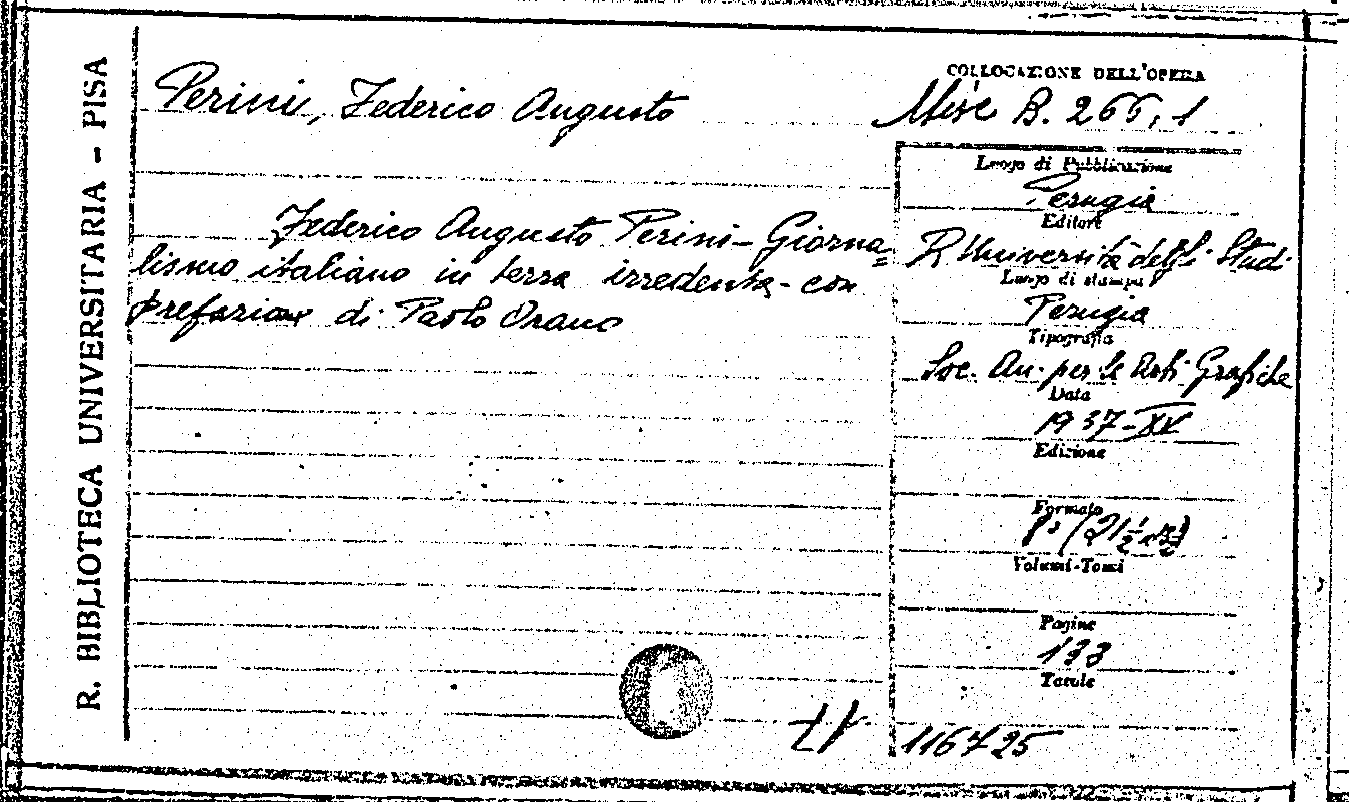 R. BIBLIOTECA UNIVERSITARIA - PISA
Perini, Federico Augusto
Federico Augusto Perini - Giorna=
lismo italiano in terra irredenta - con
prefazione di Paolo Orano
17
COLLOCAZIONE DELL'OPERA
Misc B. 266, 1
Luogo di Pubblicazione
Perugia
Editore
R Università degli Studi
Luogo di stampa
Perugia
Tipografia
Soc. An. per le Arti Grafiche
Data
1937-XV
Edizione
Formato
8° (21½
Volumi-Tomi
Pagine
133
Tavole
116725